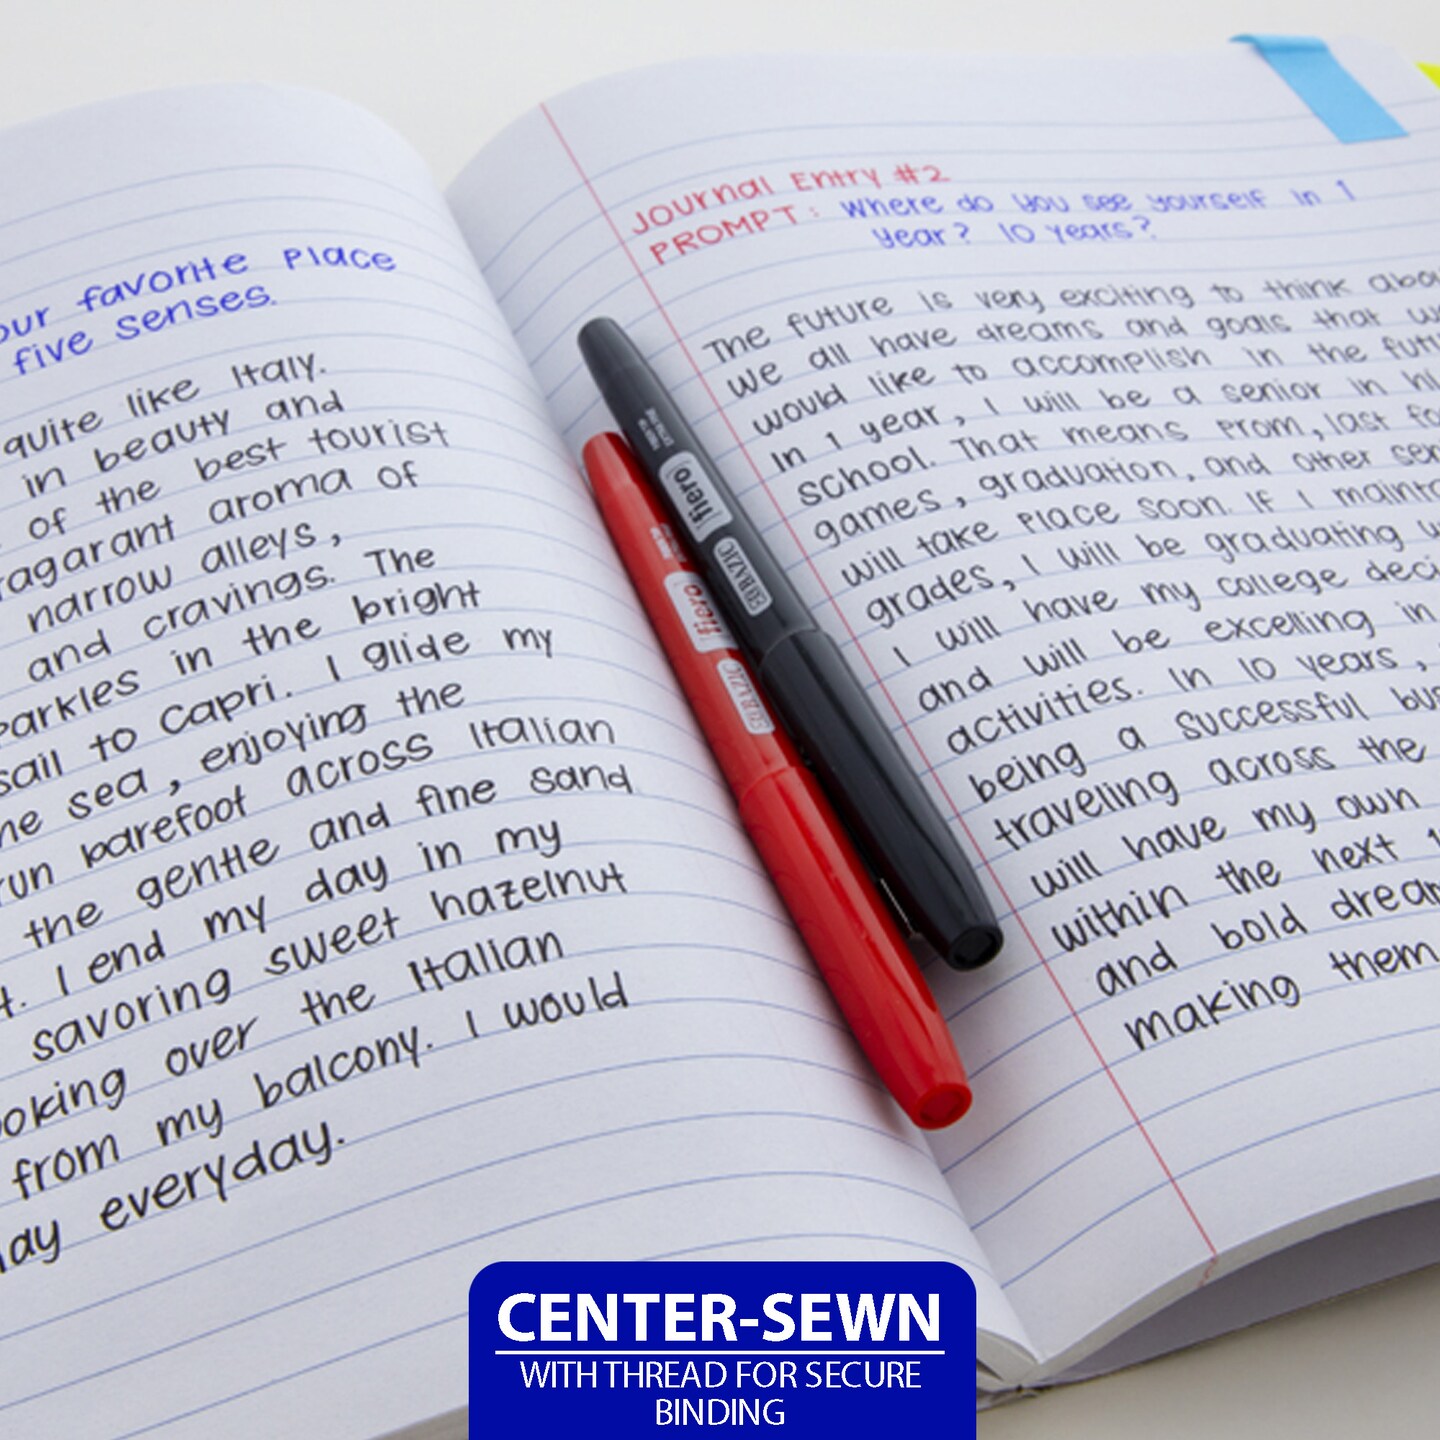 our favorite Place
five senses.
quite like Italy.
in beauty and
of the best tourist
ragarant aroma of
narrow alleys,
and cravings. The
parkles in the bright
sail to Capri. I glide my
he sea, enjoying the
run barefoot across Italian
the gentle and fine sand
t. I end my day in my
savoring sweet hazelnut
ooking over the Italian
from my balcony. I would
ay everyday.
Journal Entry #2
PROMPT: Where do you see yourself in 1
year? 10 years?
The future is very exciting to think abou
we all have dreams and goals that w
would like to accomplish in the futu
In 1 year, I will be a senior in hi
school. That means Prom, last fo
games, graduation, and other sen
will take place soon. If I mainta
grades, I will be graduating w
I will have my college deci
and will be excelling in
activities. In 10 years,
being a successful bus
traveling across the
will have my own
within the next 1
and bold dream
making them
fiero
BAZIC
fiero
BAZIC
CENTER-SEWN
WITH THREAD FOR SECURE
BINDING